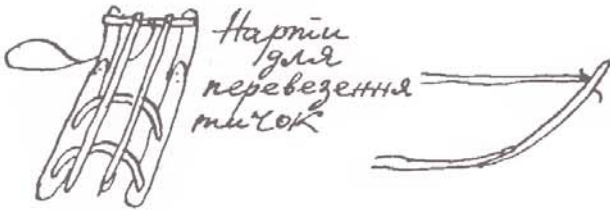 Нарти
для
перевезення
тичок